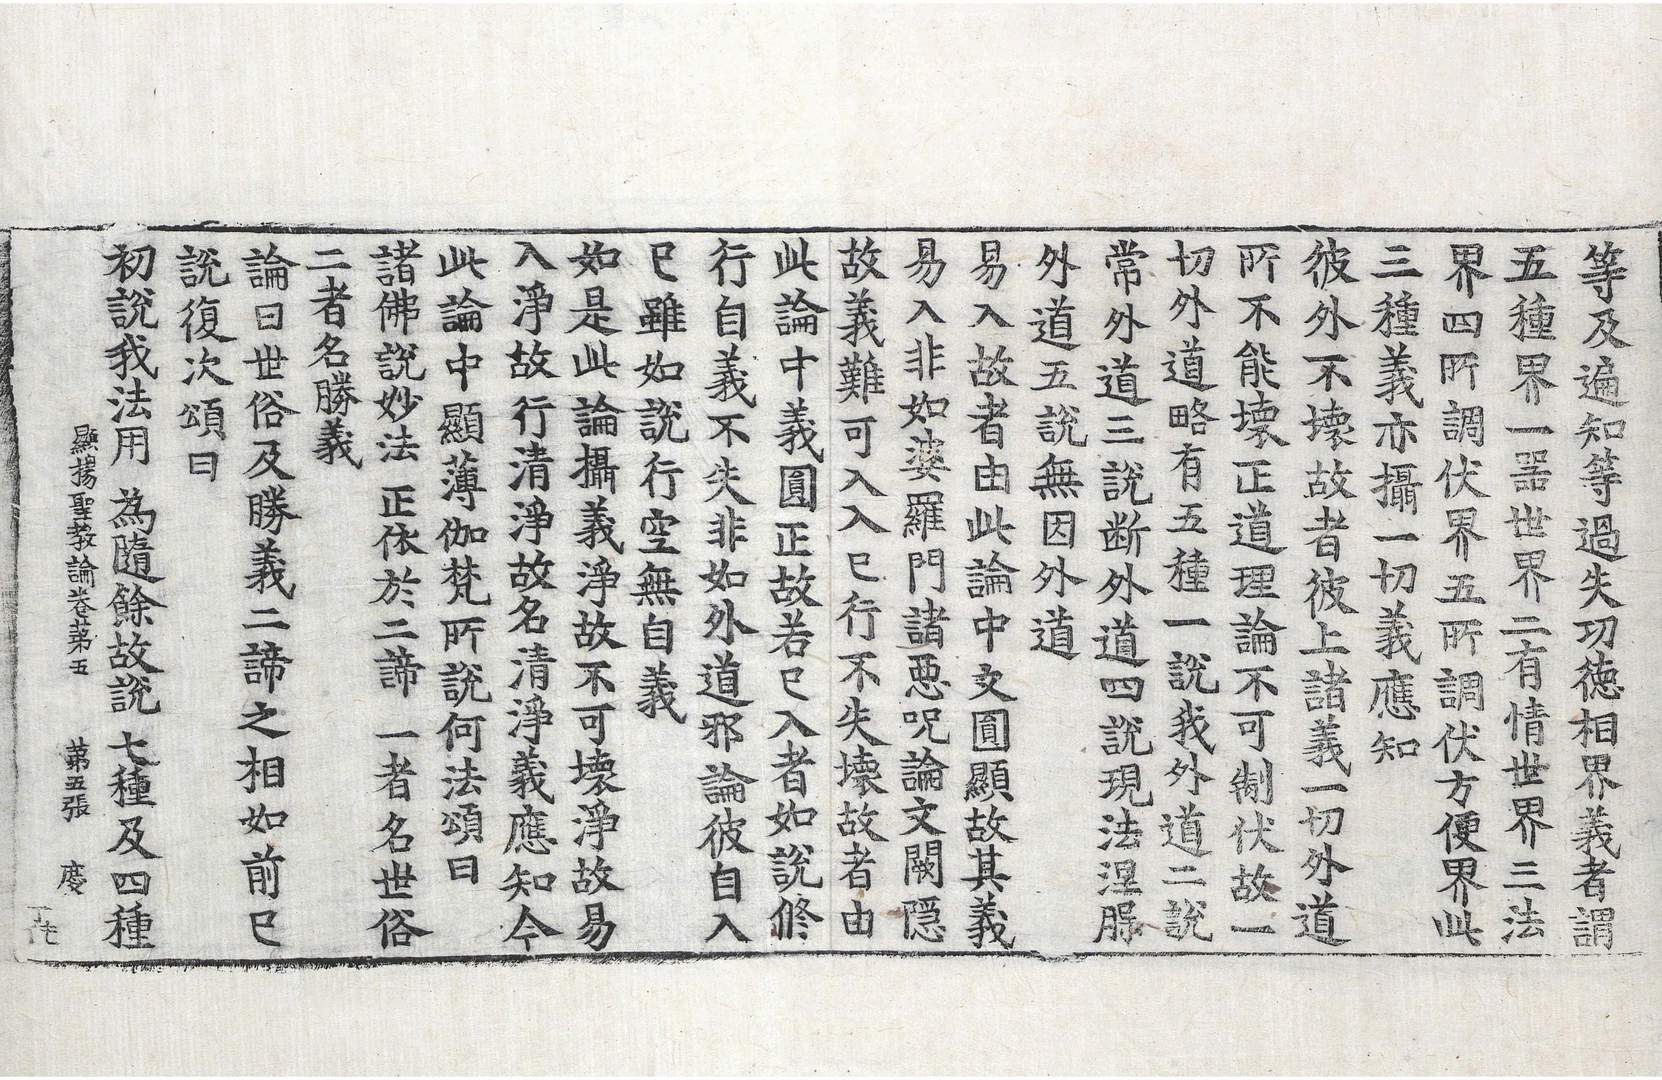 等及遍知等過失功徳相界義者謂
五種界一器世界二有情世界三法
界四所調伏界五所調伏方便界此
三種義亦攝一切義應知
彼外不壞故者彼上諸義一切外道
所不能壞正道理論不可制伏故一
切外道略有五種一說我外道二說
常外道三說断外道四說現法涅脲
外道五說無因外道
易入故者由此論中文圓顯故其義
易入非如婆羅門諸惡呪論文闕隱
故義難可入入已行不失壞故者由
此論中義圓正故若已入者如說修
行自義不失非如外道邪論彼自入
已雖如說行空無自義
如是此論攝義淨故不可壞淨故易
入淨故行清淨故名清淨義應知今
此論中顯薄伽梵所說何法頌曰
諸佛說妙法 正依於二諦 一者名世俗
二者名勝義
論曰世俗及勝義二諦之相如前已
說復次頌曰
初說我法用 為隨餘故說 七種及四種
顯揚聖教論卷第五 第五張 慶